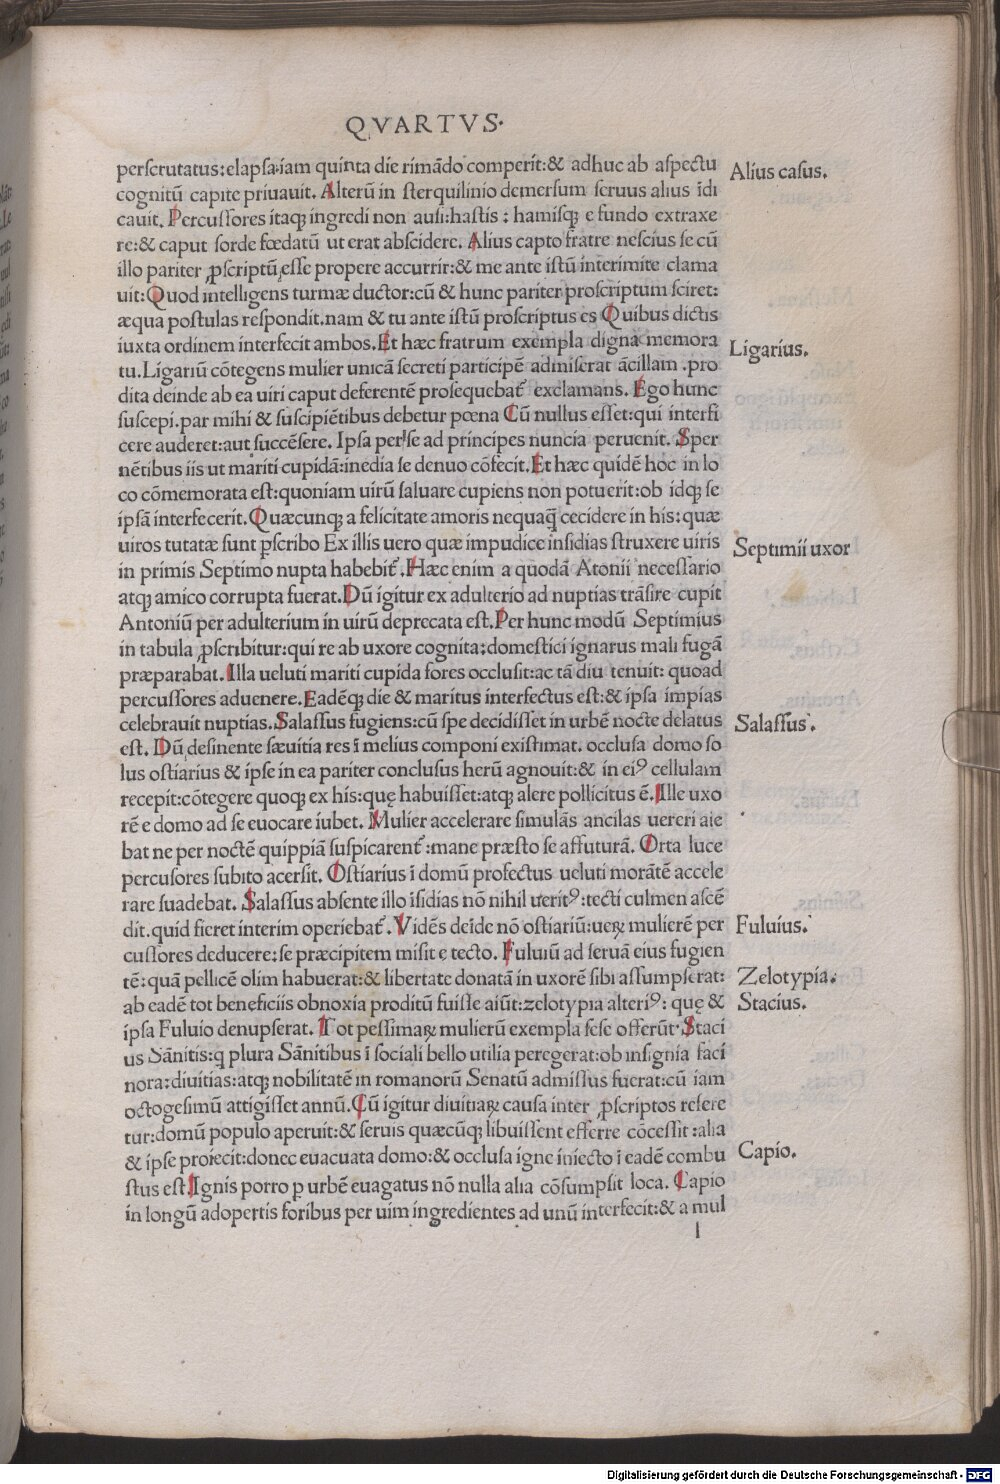 QVARTVS.
perſcrutatus:elapſa.iam quinta die rimādo comperit:& adhuc ab aſpectu
Alius caſus.
cognitū capite priuauit. Alterū in ſterquilinio demerſum ſeruus alius īdi
cauit. Percuſſores itaqꝫ ingredi non auſi:haſtis : hamiſqꝫ e fundo extraxe
re:& caput ſorde fœdatū ut erat abſcidere. Alius capto fratre neſcius ſe cū
illo pariter ꝓſcriptū eſſe propere accurrit:& me ante iſtū interimite clama
uit:Quod intelligens turmæ ductor:cū & hunc pariter proſcriptum ſciret:
æqua poſtulas reſpondit.nam & tu ante iſtū proſcriptus es Quibus dictis
iuxta ordinem interfecit ambos.Et hæc fratrum exempla digna memora
Ligarius.
tu.Ligariū cōtegens mulier unicā ſecreti participē admiſerat ācillam .pro
dita deinde ab ea uiri caput deferentē proſequebat᷑ exclamans. Ego hunc
ſuſcepi.par mihi & ſuſcipiētibus debetur pœna Cū nullus eſſet:qui interfi
cere auderet:aut ſuccēſere. Ipſa per ſe ad principes nuncia peruenit. Sper
nētibus iis ut mariti cupidā:inedia ſe denuo cōfecit.Et hæc quidē hoc in lo
co cōmemorata eſt:quoniam uirū ſaluare cupiens non potuerit:ob idqꝫ ſe
ipſā interfecerit. Quæcunqꝫ a felicitate amoris nequaq̄ cecidere in his:quæ
uiros tutatæ ſunt pſcribo Ex illis uero quæ impudice inſidias ſtruxere uiris
Septimii uxor
in primis Septimo nupta habebit᷑.Hæc enim a quodā Atonii neceſſario
atqꝫ amico corrupta fuerat.Dū igitur ex adulterio ad nuptias trāſire cupit
Antoniū per adulterium in uirū deprecata eſt.Per hunc modū Septimius
in tabula ꝓſcribitur:qui re ab uxore cognita:domeſtici ignarus mali fugā
præparabat.Illa ueluti mariti cupida fores occluſit:ac tā diu tenuit: quoad
percuſſores aduenere.Eadēqꝫ die & maritus interfectus eſt:& ipſa impias
celebrauit nuptias.Salaſſus fugiens:cū ſpe decidiſſet in urbē nocte delatus
Salaſſus.
eſt. Dū deſinente ſæuitia res ī melius componi exiſtimat. occluſa domo ſo
lus oſtiarius & ipſe in ea pariter concluſus herū agnouit:& in eiꝰ cellulam
recepit:cōtegere quoqꝫ ex his:quę habuiſſet:atqꝫ alere pollicitus ē.Ille uxo
rē e domo ad ſe euocare iubet. Mulier accelerare ſimulās ancilas uereri aie
bat ne per noctē quippiā ſuſpicarent᷑:mane præſto ſe affuturā. Orta luce
percuſores ſubito acerſit. Oſtiarius ī domū profectus ueluti morātē accele
rare ſuadebat. Salaſſus abſente illo īſidias nō nihil ueritꝰ:tecti culmen aſcē
dit.quid fieret interim operiebat᷑. Vidēs deīde nō oſtiariū:ueꝝ mulierē per
Fuluius.
cuſſores deducere:ſe præcipitem miſit e tecto. Fuluiū ad ſeruā eius fugien
tē:quā pellicē olim habuerat:& libertate donatā in uxorē ſibi aſſumpſerat:
Zelotypia.
ab eadē tot beneficiis obnoxia proditū fuiſſe aiūt:zelotypia alteriꝰ: quę &
Stacius.
ipſa Fuluio denupſerat. Tot peſſimaꝝ mulierū exempla ſeſe offerūt Staci
us Sānitis:q plura Sānitibus ī ſociali bello utilia peregerat:ob inſignia faci
nora:diuitias:atqꝫ nobilitatē in romanorū Senatū admiſſus fuerat:cū iam
octogeſimū attigiſſet annū.Cū igitur diuitiaꝝ cauſa inter ꝓſcriptos refere
tur:domū populo aperuit:& ſeruis quæcūqꝫ libuiſſent efferre cōceſſit :alia
& ipſe proiecit:donec euacuata domo:& occluſa igne iniecto ī eadē combu
Capio.
ſtus eſt.Ignis porro p urbē euagatus nō nulla alia cōſumpſit loca. Capio
in longū adopertis foribus per uim ingredientes ad unū interfecit:& a mul
l
Digitalisierung gefördert durch die Deutsche Forschungsgemeinschaft - DFG